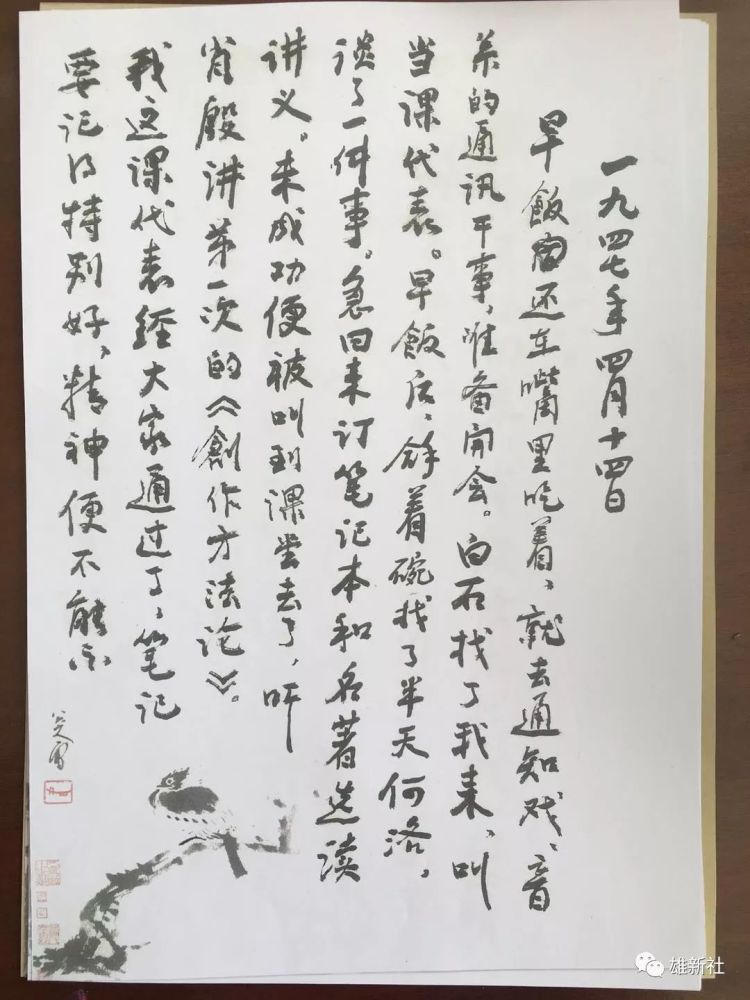 一九四七年四月十四日
早飯窩还在嘴里吃着，就去通知戏、音
系的通讯干事，准备开会。白石找了我来，叫
当课代表。早飯后，馀着碗找了半天何洛，
谈了一件事。急回来订笔记本和名著选读
讲义。未成功便被叫到课堂去了，听
肖殷讲第一次的《創作方法论》。
我这课代表经大家通过了，笔记
要记得特别好，精神便不能不
雄新社